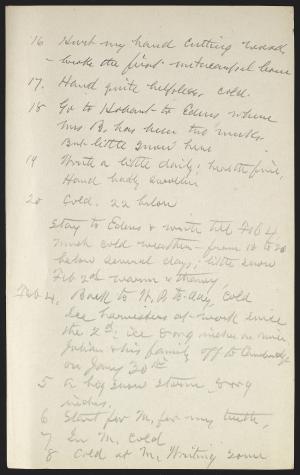 16 Hurt my hand cutting wood
- wrote the first
17. Hand quite helpless, cold.
18 Go to Hobart to Edens where
Mrs B. has been two weeks.
But little snow here
19 Write a little daily; here the fire,
Hand badly swollen
20 Cold. 22 below
Stay to Edens & write till Feb 4
Much cold weather - from 10 to 20
below several days; little snow
Feb 2nd warm & thawy,
Feb 4, Back to W. P. to-day, cold
Ice harvesters at work since
the 2d; ice 8 or 9 inches
Julian & his family off to Cambridge
on Jany 30th
5 A big snow storm 8 or 9
inches.
6 Start for M. for my teeth,
7 In M. Cold
8 Cold at M. Writing some